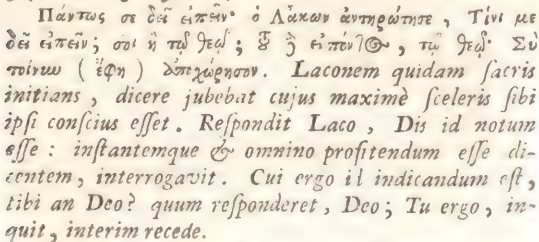 Πάντως σε δεῖ εἰπεῖν· ὁ Λάκων ἀντηρώτησε, Τίνι με
δεῖ εἰπεῖν; σοὶ ἢ τῷ θεῷ; τοῦ δὲ εἰπόντος, τῷ θεῷ· Σὺ
τοίνυν (ἔφη) ἀποχώρησον. Laconem quidam ſacris
initians, dicere jubebat cujus maximè ſceleris ſibi
ipſi conſcius eſſet. Reſpondit Laco, Dis id notum
eſſe: inſtantemque & omnino profitendum eſſe di-
centem, interrogavit. Cui ergo il indicandum eſt,
tibi an Deo? quum reſponderet, Deo; Tu ergo, in-
quit, interim recede.